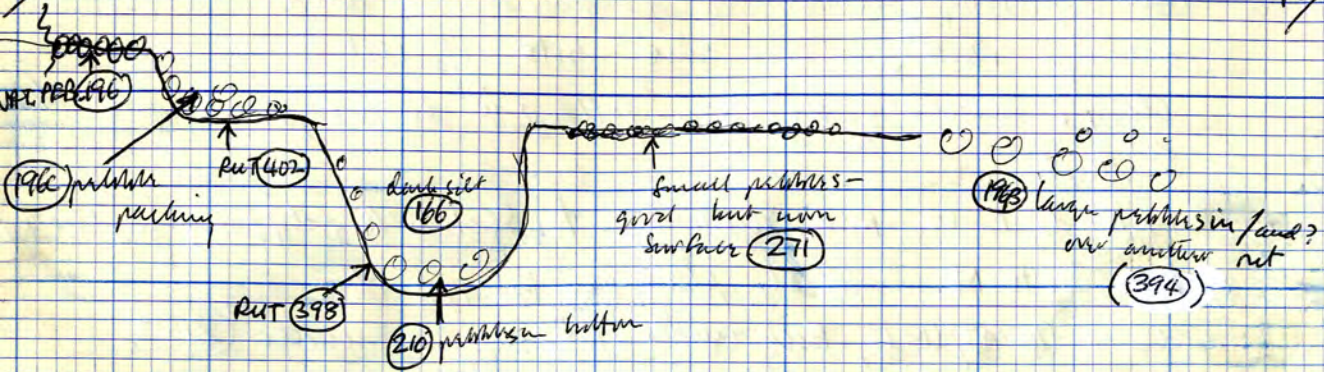 PEB 196
196C pebble
packing
RUT 402
dark silt
166
RUT 398
210 pebbles on bottom
Small pebbles –
good but worn
Surface 271
196B large pebbles in/and?
over another rut
(394)